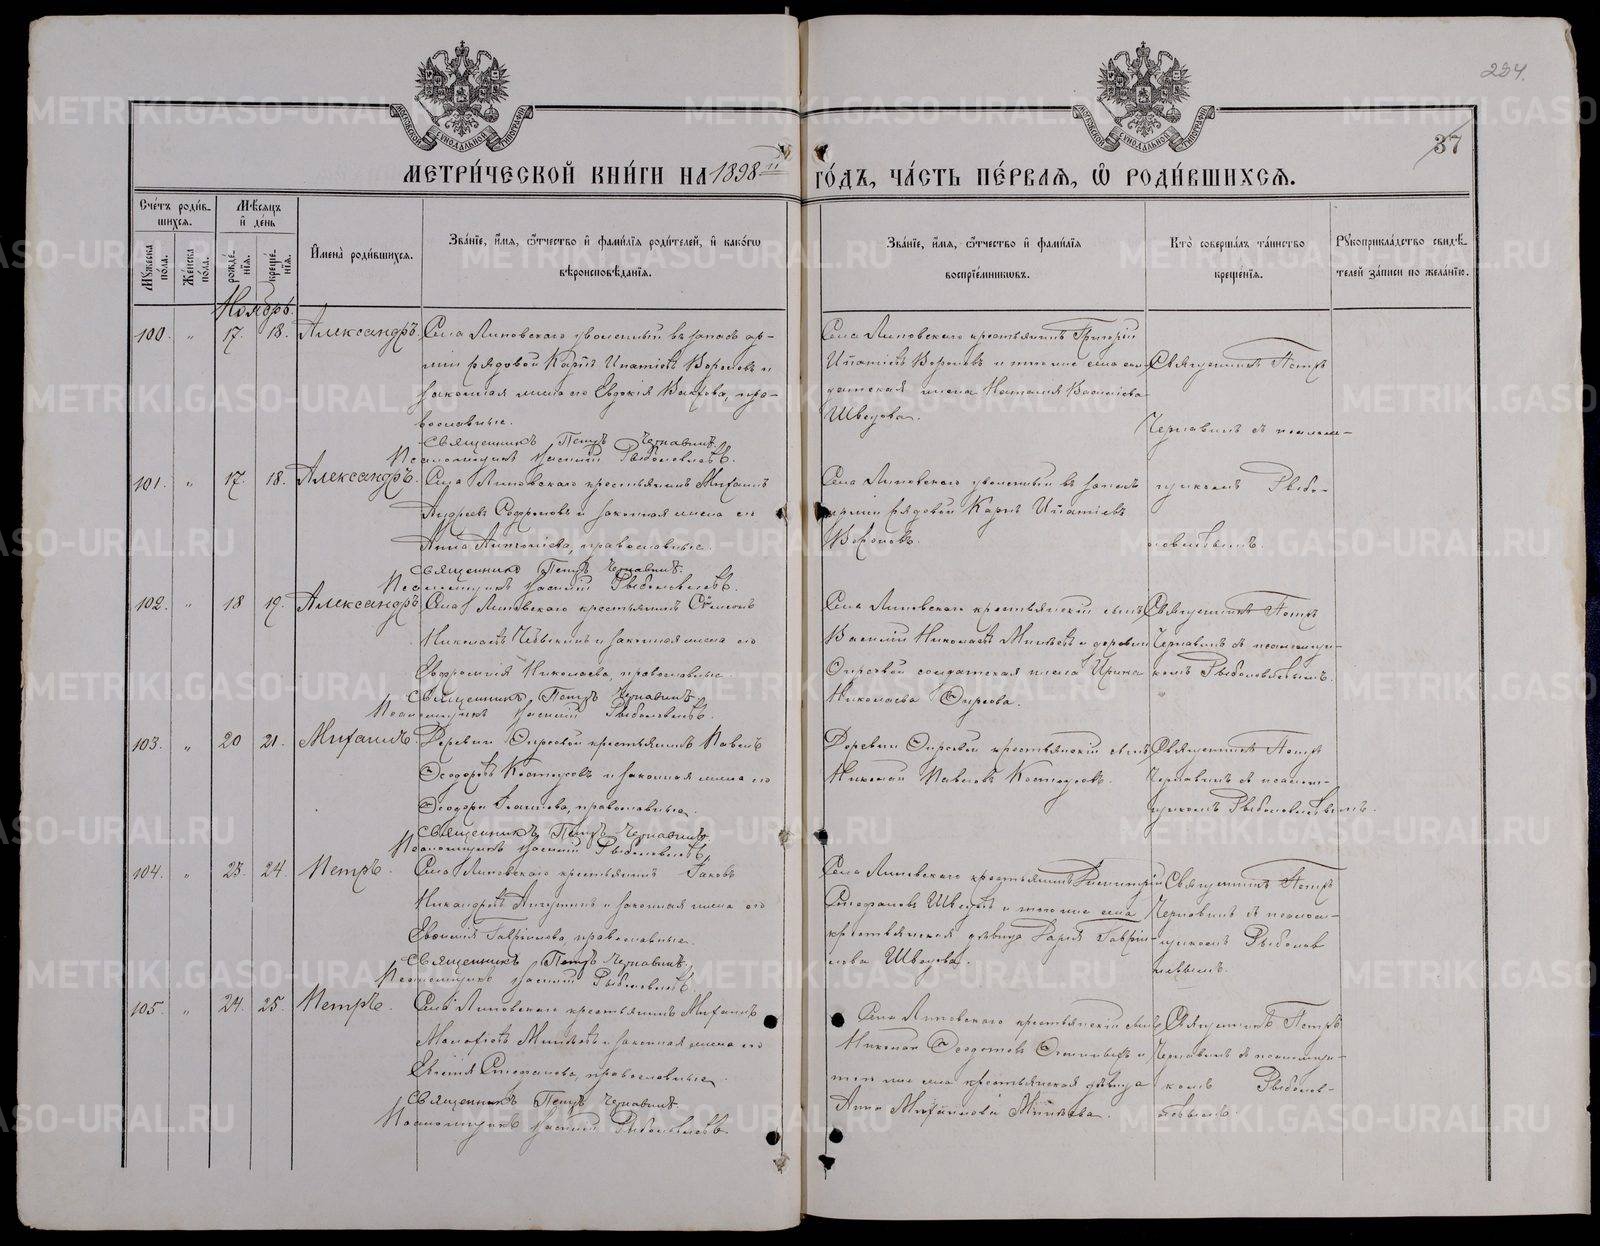 234.
37
МЕТРИ́ЧЕСКОЙ КНИ́ГИ НА 1898 й ГО́ДЪ, ЧА́СТЬ ПЕ́РВАѦ, Ѡ҆ РОДИ́ВШИХСѦ.
Сче́тъ роди́вшихсѧ.
Мѣ́сѧцъ и҆ де́нь
Мꙋ́жеска по́ла.
Же́нска по́ла.
рожде́нїѧ.
креще́нїѧ.
И҆мена̀ роди́вшихсѧ.
Зва́нїе, и҆́мѧ, ѻ҆́тчество и҆ фами́лїѧ роди́телей, и҆ како́гѡ
вѣроисповѣ́данїѧ.
Зва́нїе, и҆́мѧ, ѻ҆́тчество и҆ фами́лїѧ
воспрїе́мникѡвъ.
Кто̀ соверша́лъ та́инство
креще́нїѧ.
Рꙋкоприкла́дство свидѣ́телей за́писи по жела́нїю.
Ноябрь.
100. " 17. 18. Александръ.
Села Липовскаго уволенный въ запасъ ар-
міи рядовой Карпъ Ипатіевъ Вороновъ и
законная жена его Евдокія
православные.
Священникъ Петръ Чернавинъ.
Псаломщикъ Василій Рыболовлевъ.
Села Липовскаго крестьянинъ Григорій
Ипатіевъ Вороновъ и того же села сол-
датская жена Наталія Васильева
Шведова.
Священникъ Петръ
Чернавинъ съ псалом-
щикомъ Рыбо-
ловлевымъ.
101. " 17. 18. Александръ.
Села Липовскаго крестьянинъ Михаилъ
Андреевъ и законная жена его
Анна Антоніева, православные.
Священникъ Петръ Чернавинъ.
Псаломщикъ Василій Рыболовлевъ.
Села Липовскаго уволенный въ запасъ
арміи рядовой Карпъ Ипатіевъ
Вороновъ.
102. " 18 19. Александръ
Села Липовскаго крестьянинъ Симеонъ
Николаевъ и законная жена его
Евфросинія Николаева, православные.
Священникъ Петръ Чернавинъ.
Псаломщикъ Василій Рыболовлевъ.
Села Липовскаго крестьянскій сынъ
Василій Николаевъ Минѣевъ и деревни
солдатская жена Ирина
Николаева
Священникъ Петръ
Чернавинъ съ псаломщи-
комъ Рыболовлевымъ.
103. " 20 21. Михаилъ.
Деревни крестьянинъ Павелъ
Ѳеодоровъ Костоусовъ и законная жена его
Ѳеодора православные.
Священникъ Петръ Чернавинъ.
Псаломщикъ Василій Рыболовлевъ.
Деревни крестьянскій сынъ
Николай Павловъ Костоусовъ.
Священникъ Петръ
Чернавинъ съ псалом-
щикомъ Рыболовлевымъ.
104. " 23. 24. Петръ.
Села Липовскаго крестьянинъ Іаковъ
Никандровъ и законная жена его
Евѳимія Гавріилова, православные.
Священникъ Петръ Чернавинъ.
Псаломщикъ Василій Рыболовлевъ.
Села Липовскаго крестьянинъ Димитрій
Стефановъ Шведовъ и того же села
крестьянская дѣвица Дарія Гаврии-
лова Шведова.
Священникъ Петръ
Чернавинъ съ псалом-
щикомъ Рыболов
левымъ.
105. " 24. 25. Петръ.
Села Липовскаго крестьянинъ Михаилъ
Минѣевъ и законная жена его
Евгенія Стефанова, православные.
Священникъ Петръ Чернавинъ.
Псаломщикъ Василій Рыболовлевъ
Села Липовскаго крестьянскій сынъ
Николай Ѳеодотовъ и
того же села крестьянская дѣвица
Анна Михаилова Минѣева.
Священникъ Петръ
Чернавинъ съ псаломщи-
комъ Рыболов-
левымъ.
METRIKI.GASO-URAL.RU